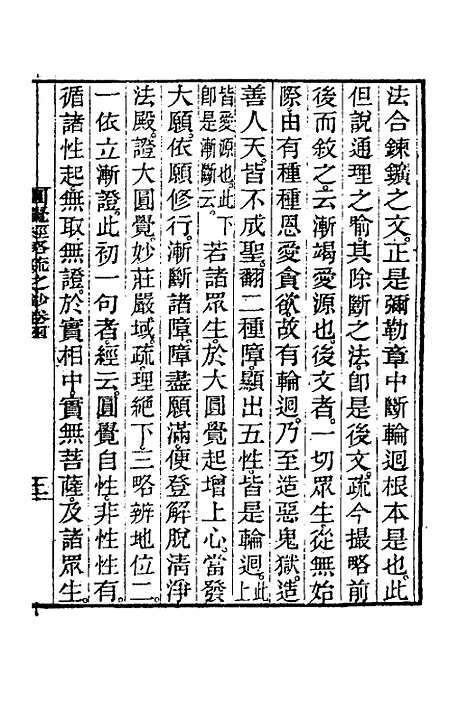 法合鍊鑛之文。正是彌勒章中斷輪迴根本是也。此
但說通理之喻。其除斷之法。卽是後文。疏今撮略前
後而敘之。云漸竭愛源也。後文者。一切眾生。從無始
際。由有種種恩愛貪欲。故有輪迴。乃至造惡鬼獄。造
善人天。皆不成聖。翻二種障。顯出五性。皆是輪迴。此上
皆愛源也。此下卽是漸斷云。若諸眾生。於大圓覺起增上心。當發
大願。依願修行。漸斷諸障。障盡願滿。便登解脫清淨
法殿。證大圓覺妙莊嚴域。疏理絕下三略辨地位二
一依立漸證。此初一句者。經云。圓覺自性。非性性有。
循諸性起。無取無證。於實相中。實無菩薩。及諸眾生。
圓覺經略疏之鈔卷